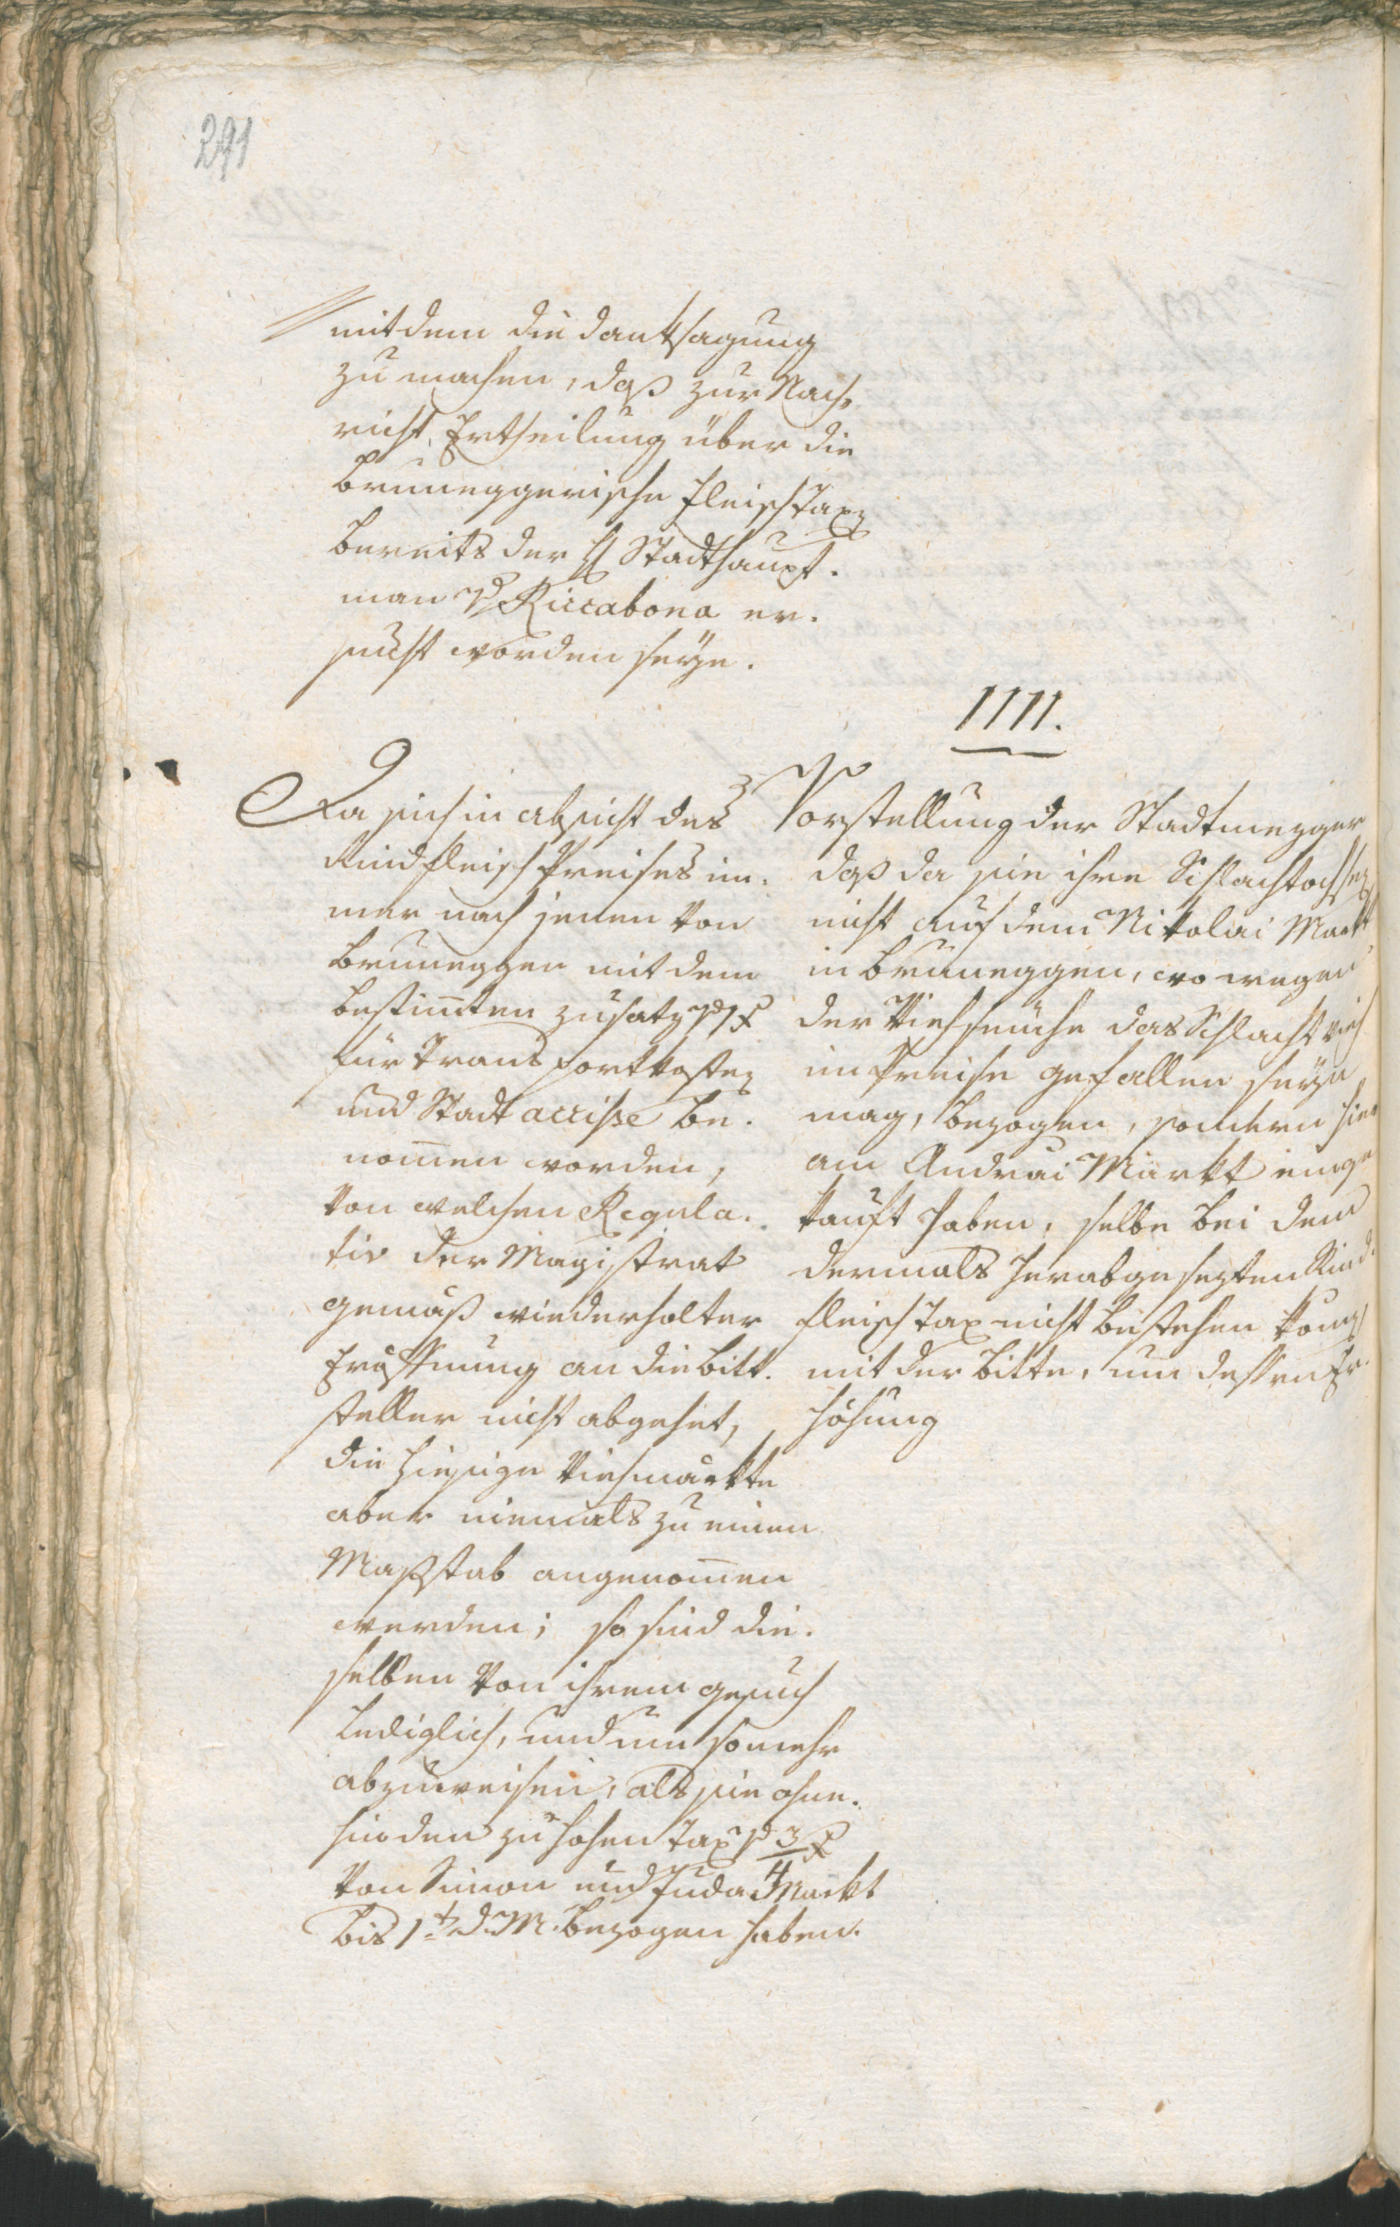 291
mit dem die danksagung
zu machen, daß zur Nach-
richt Ertheilung über die
Bruneggerische Fleisch Tax
bereits der H Stadthaupt-
man v Riccabona er-
sucht worden seye.
1111.
Da sich in absicht des
Rindfleisch Preises im-
mer nach jenen von
Brunegger mit dem
bestim̅ten Zusatz v 1 x
für Transportkosten
und Stadt accisse be-
nom̅en worden,
von welchen Regula-
tiv der Magistrat
gemäß wiederholter
Eröffnung an die bitt-
steller nicht abgehet,
die hiesige Viehmärkte
aber niemals zu einen
Maßstab angenom̅en
werden; so sind die-
selben von ihrem gesuch
lediglich, und um so mehr
abzuweisen, als sie ohne-
hin den zu hohen Tax v 3/4 x
von Simon und Juda Markt
bis 1t d. M. bezogen haben.
Vorstellung der Stadtmezger
daß da sie ihre Schlachtochsen
nicht auf dem Nikolai Markt
in Bruneggen, wo wegen
der Viehseuche das Schlachtvieh
im Preise gefallen seyn
mag, bezogen, sondern hier
am Andrai Markt einge
kauft haben, selbe bei dem
dermals herabgesezten Rind-
fleisch Tax nicht bestehen könen
mit der bitte, um dessen Er-
höhung